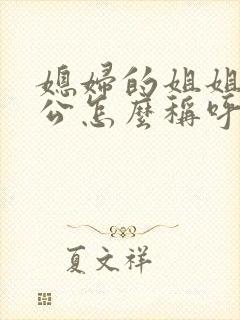 媳婦的姐姐
公怎麼稱呼
夏文祥